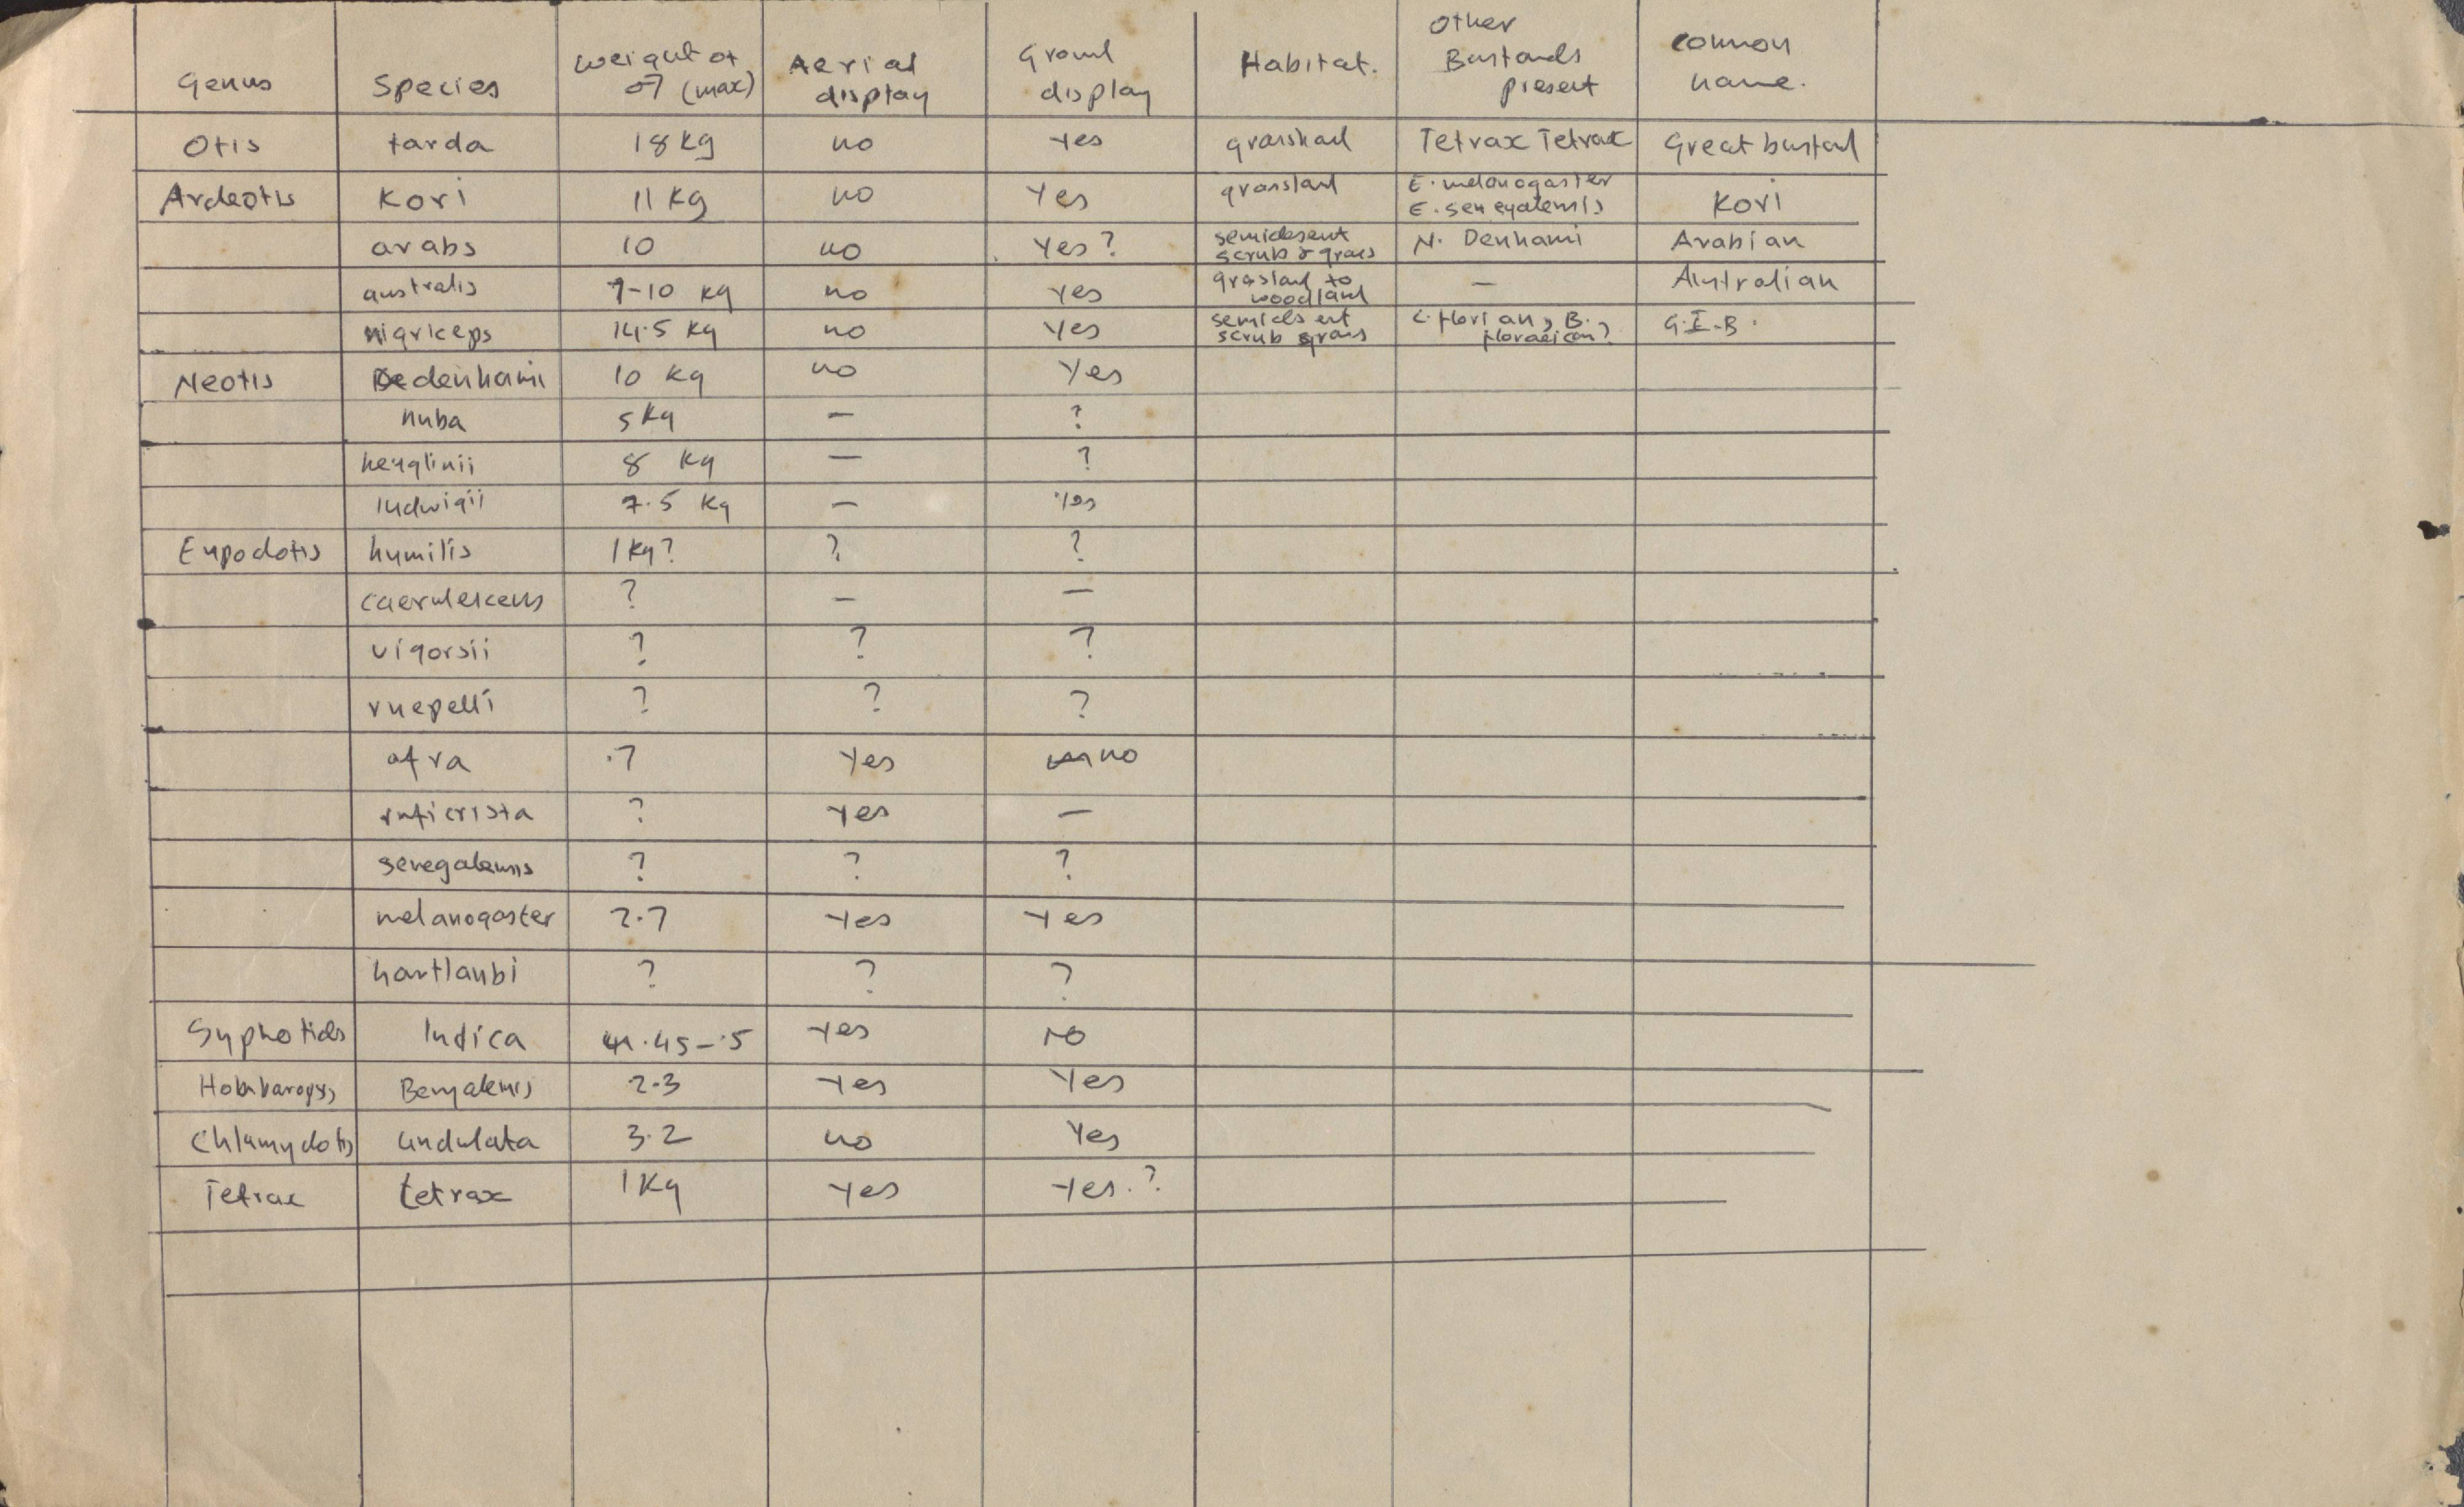 Genus Species Weight of ♂ (max) Aerial display Ground display Habitat. Other Bustards present common name.
Otis tarda 18 kg no Yes grassland Tetrax Tetrax Great bustard
Ardeotis Kori 11 kg no Yes grassland E. melanogaster E. senegalensis Kori
arabs 10 no Yes? semidesert scrub & grass N. Denhami Arabian
australis 7-10 kg no Yes grassland to woodland — Australian
nigriceps 14.5 kg no Yes semidesert scrub grass L. florian, B. floraican? G.I.B.
Neotis denhami 10 kg no Yes
nuba 5 kg — ?
heuglinii 8 kg — ?
ludwigii 7.5 kg — Yes
Eupodotis humilis 1 kg? ? ?
caerulescens ? — —
vigorsii ? ? ?
rueppelli ? ? ?
afra .7 Yes no
ruficrista ? Yes —
senegalensis ? ? ?
melanogaster 2.7 Yes Yes
hartlaubi ? ? ?
Syphotides Indica .45-.5 Yes NO
Houbaropsis Bengalensis 2.3 Yes Yes
Chlamydotis undulata 3.2 no Yes
Tetrax tetrax 1 kg Yes Yes.?